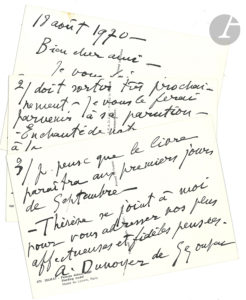 18 août 1970 -
Bien cher ami -
Je vous
2/ doit sortir très prochai-
nement - Je vous le ferai
parvenir à sa parution -
- Enchanté de
à la
3/ Je pense que le livre
paraîtra aux premiers jours
de Septembre -
- Thérèse se joint à moi
pour vous adresser nos plus
affectueuses et fidèles pensées.
A. Dunoyer de Segonzac